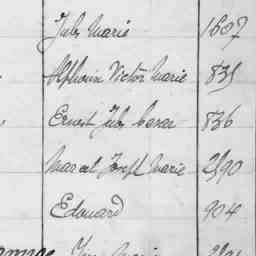 Jules Marie 1607
Alphonse Victor Marie 835
Ernest Jules Cesar 836
Marcel Joseph Marie 2590
Edouard 904